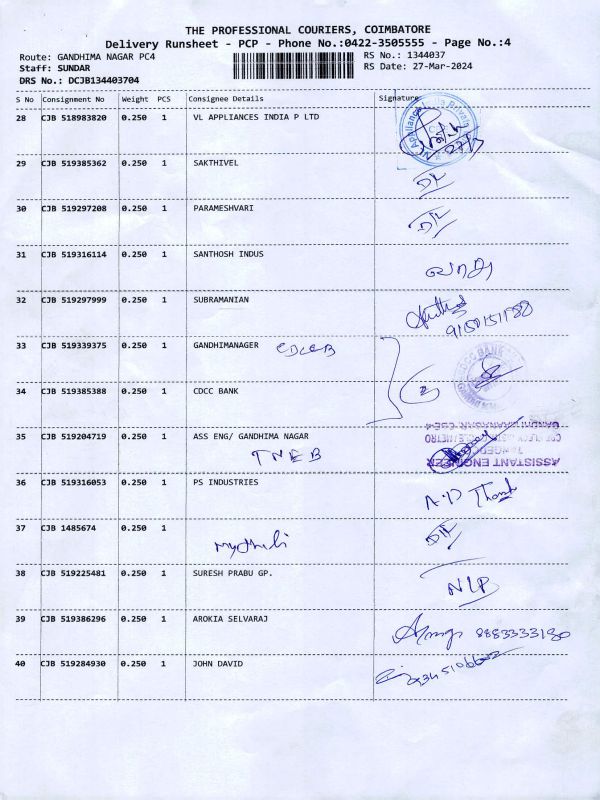 THE PROFESSIONAL COURIERS, COIMBATORE
Delivery Runsheet - PCP - Phone No.:0422-3505555 - Page No.:4
Route: GANDHIMA NAGAR PC4 RS No.: 1344037
Staff: SUNDAR RS Date: 27-Mar-2024
DRS No.: DCJB134403704
S No Consignment No Weight PCS Consignee Details Signature
28 CJB 518983820 0.250 1 VL APPLIANCES INDIA P LTD
29 CJB 519385362 0.250 1 SAKTHIVEL
30 CJB 519297208 0.250 1 PARAMESHVARI
31 CJB 519316114 0.250 1 SANTHOSH INDUS
32 CJB 519297999 0.250 1 SUBRAMANIAN
9150151188
33 CJB 519339375 0.250 1 GANDHIMANAGER
34 CJB 519385388 0.250 1 CDCC BANK
35 CJB 519204719 0.250 1 ASS ENG/ GANDHIMA NAGAR
TNEB
ASSISTANT ENGINEER
36 CJB 519316053 0.250 1 PS INDUSTRIES
37 CJB 1485674 0.250 1
mythili
38 CJB 519225481 0.250 1 SURESH PRABU GP.
NIP
39 CJB 519386296 0.250 1 AROKIA SELVARAJ
8883333180
40 CJB 519284930 0.250 1 JOHN DAVID